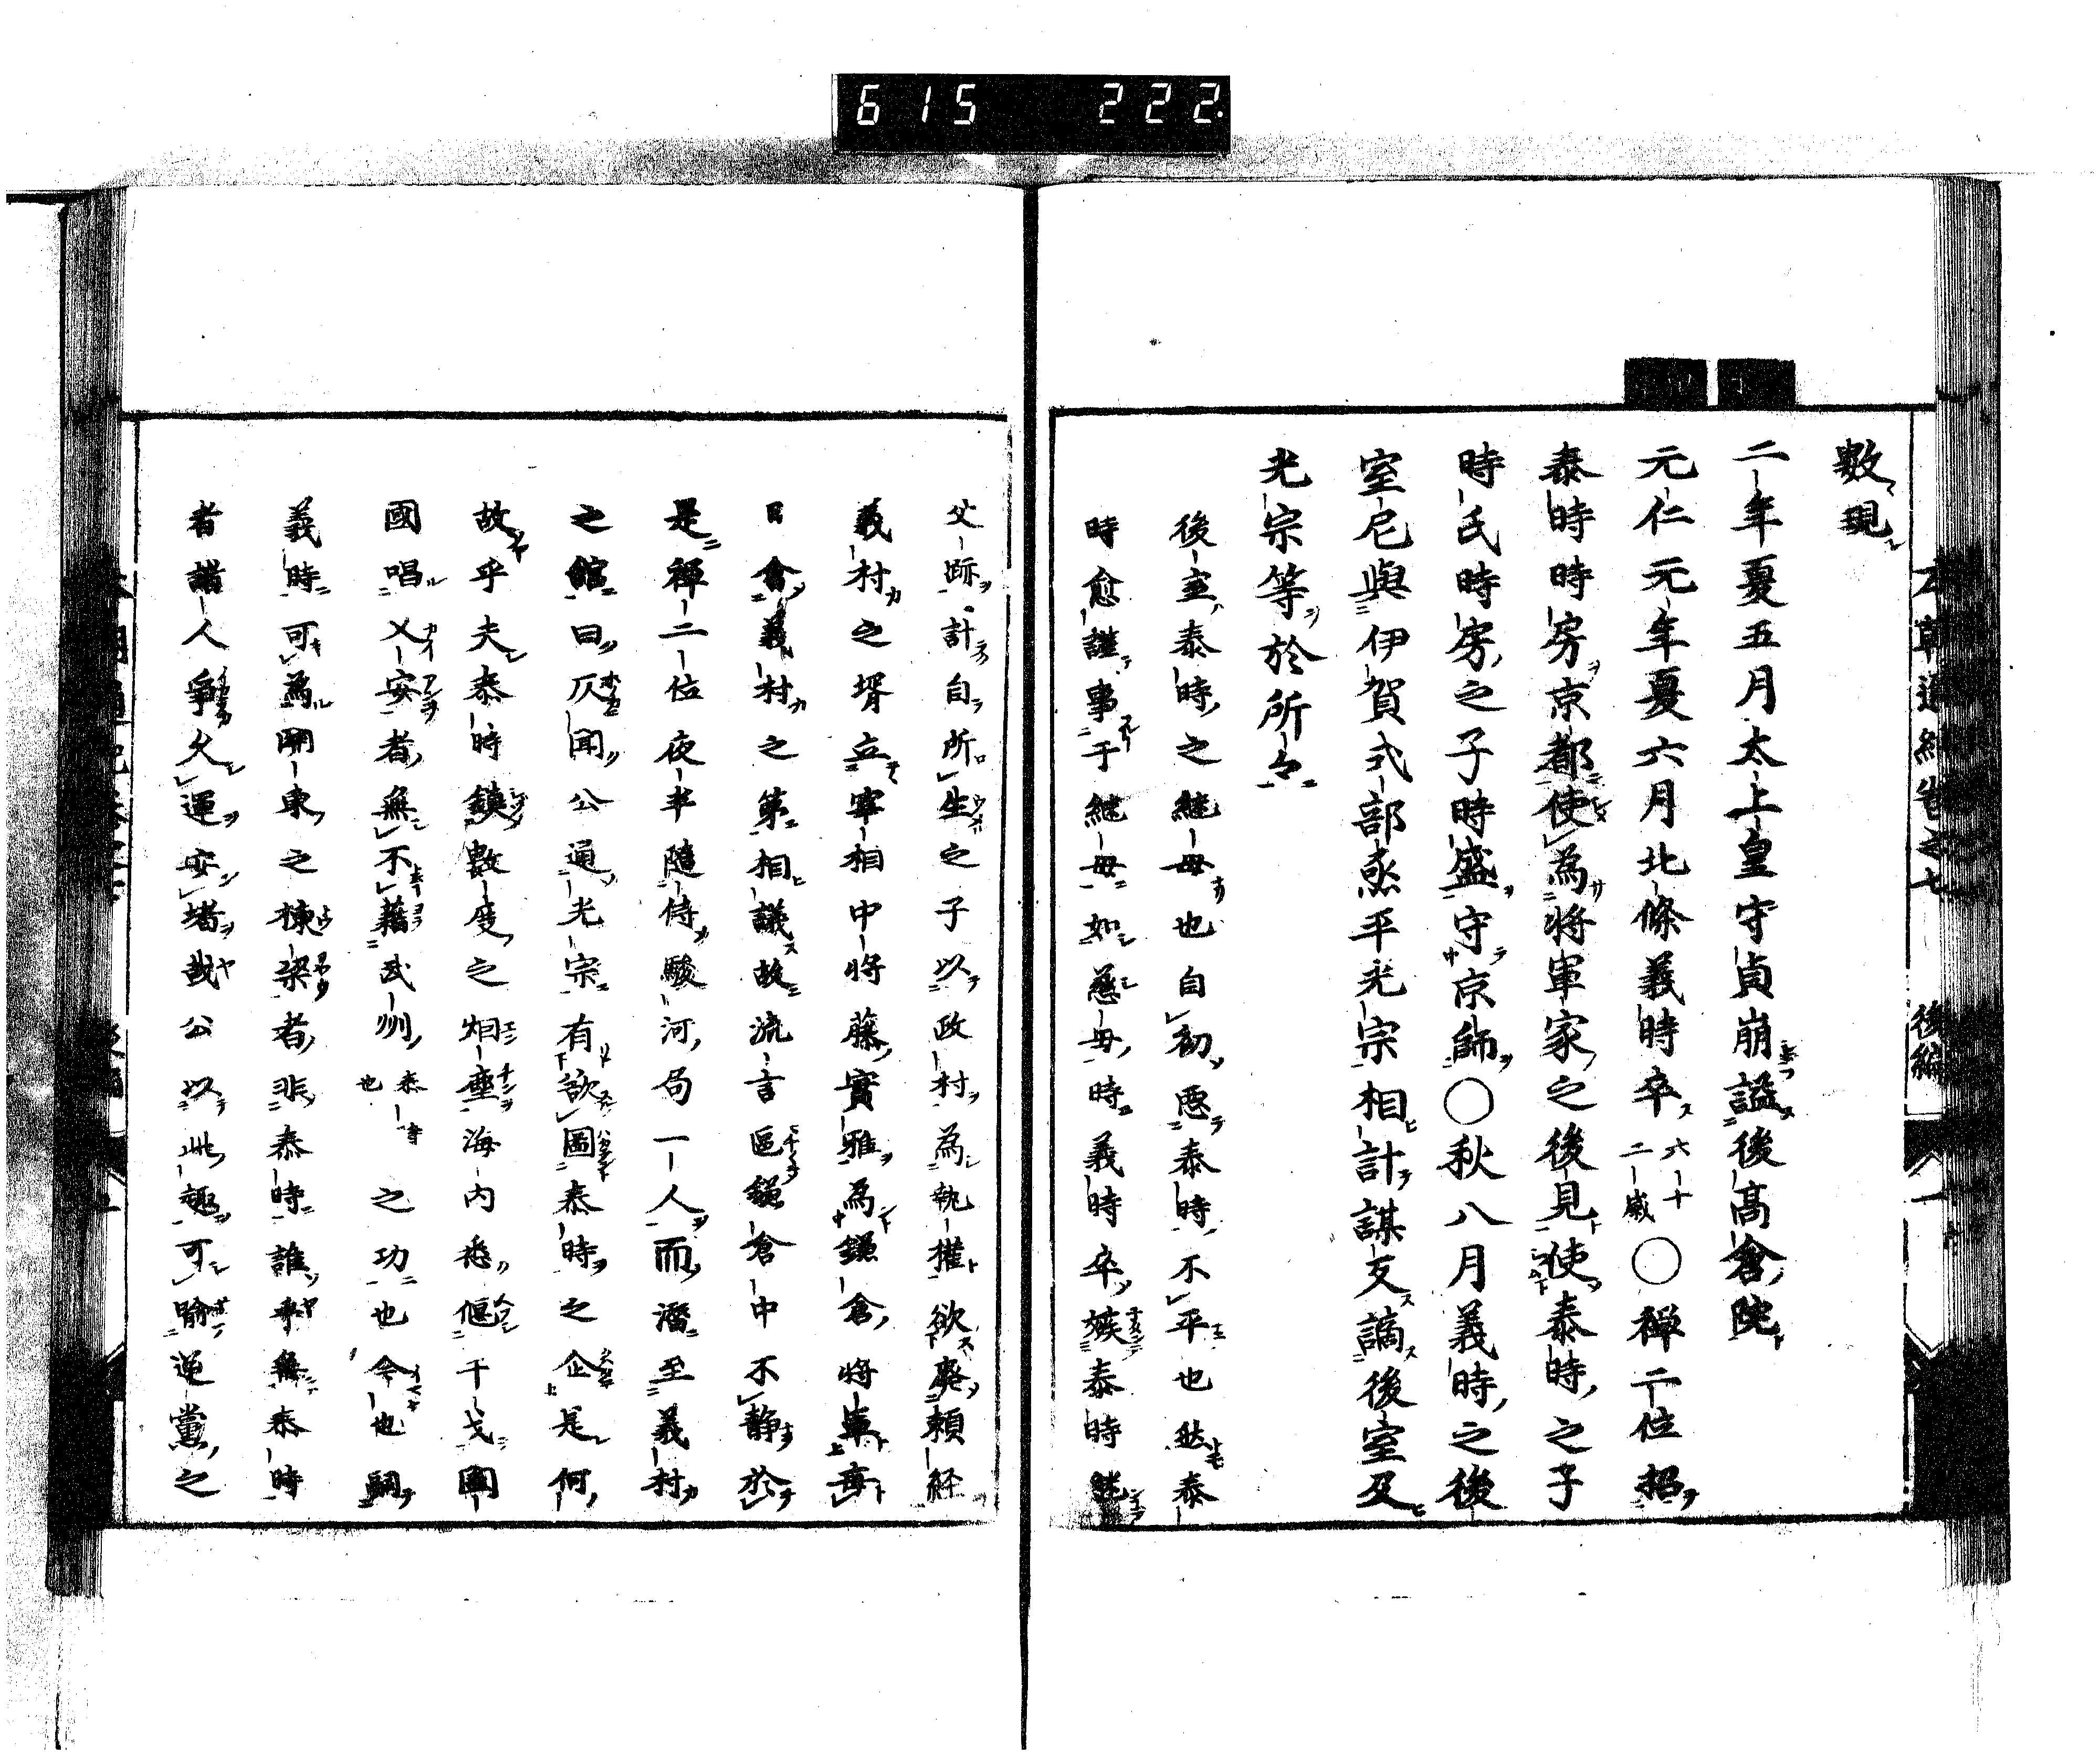 615 222
數現
二年夏五月太上皇守貞崩謚後高倉院
元仁元年夏六月北條義時卒六十二歲〇禪二位招
泰時時房京都使為將軍家之後見使泰時之子
時氏時房之子時盛守京師〇秋八月義時之後
室尼與伊賀式部丞平光宗相計謀反謫後室及
光宗等於所々
後室泰時之継母也自初惡泰時不平也然泰
時愈謹事于継母如慈母時義時卒嫉泰時継
父跡計自所生之子以政村為執權欲廢頼経
義村之壻立宰相中將藤實雅為鎌倉將軍毎
日會義村之第相議故流言區鎌倉中不静於
是禪二位夜半随侍駿河局一人而潛至義村
之館曰仄聞公通光宗有欲圖泰時之企是何
故乎夫泰時鎮數度之烟塵海内悉偃干戈國
國唱乂安者無不藉武州泰時也之功也今也嗣
義時可為關東之棟梁者非泰時誰乎無泰時
者諸人爭久運安堵哉公以此趣可喻逆黨之
後編